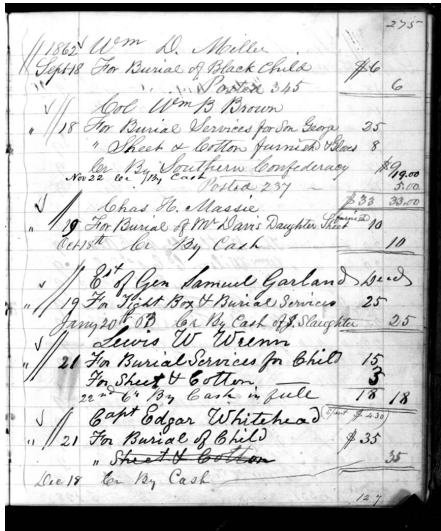 275
1862 Wm D. Miller
Sept 18 For Burial of Black Child $6
" " Posted 345 6
Col Wm B Brown
" 18 For Burial Services for Son George 25
" Sheet & Cotton furnished & Gloves 8
Cr By Southern Confederacy $9
Nov 22 Cr By Cash 19.00
Posted 237 5.00
$33 33.00
Chas H. Massie
" 19 For Burial of Mr Davis Daughter Sheet furnished 10
Oct 18th Cr By Cash 10
Est of Gen Samuel Garland Decd
" 19 For Tight Box & Burial Services 25
Jany 20th 63 Cr By Cash of J. Slaughter 25
Lewis W Wrenn
" 21 For Burial Services for Child 15
For Sheet & Cotton 3
22nd Cr By Cash in full 18 18
Capt Edgar Whitehead
" 21 For Burial of Child $35
" Sheet & Cotton 35
Dec 18 Cr By Cash
127